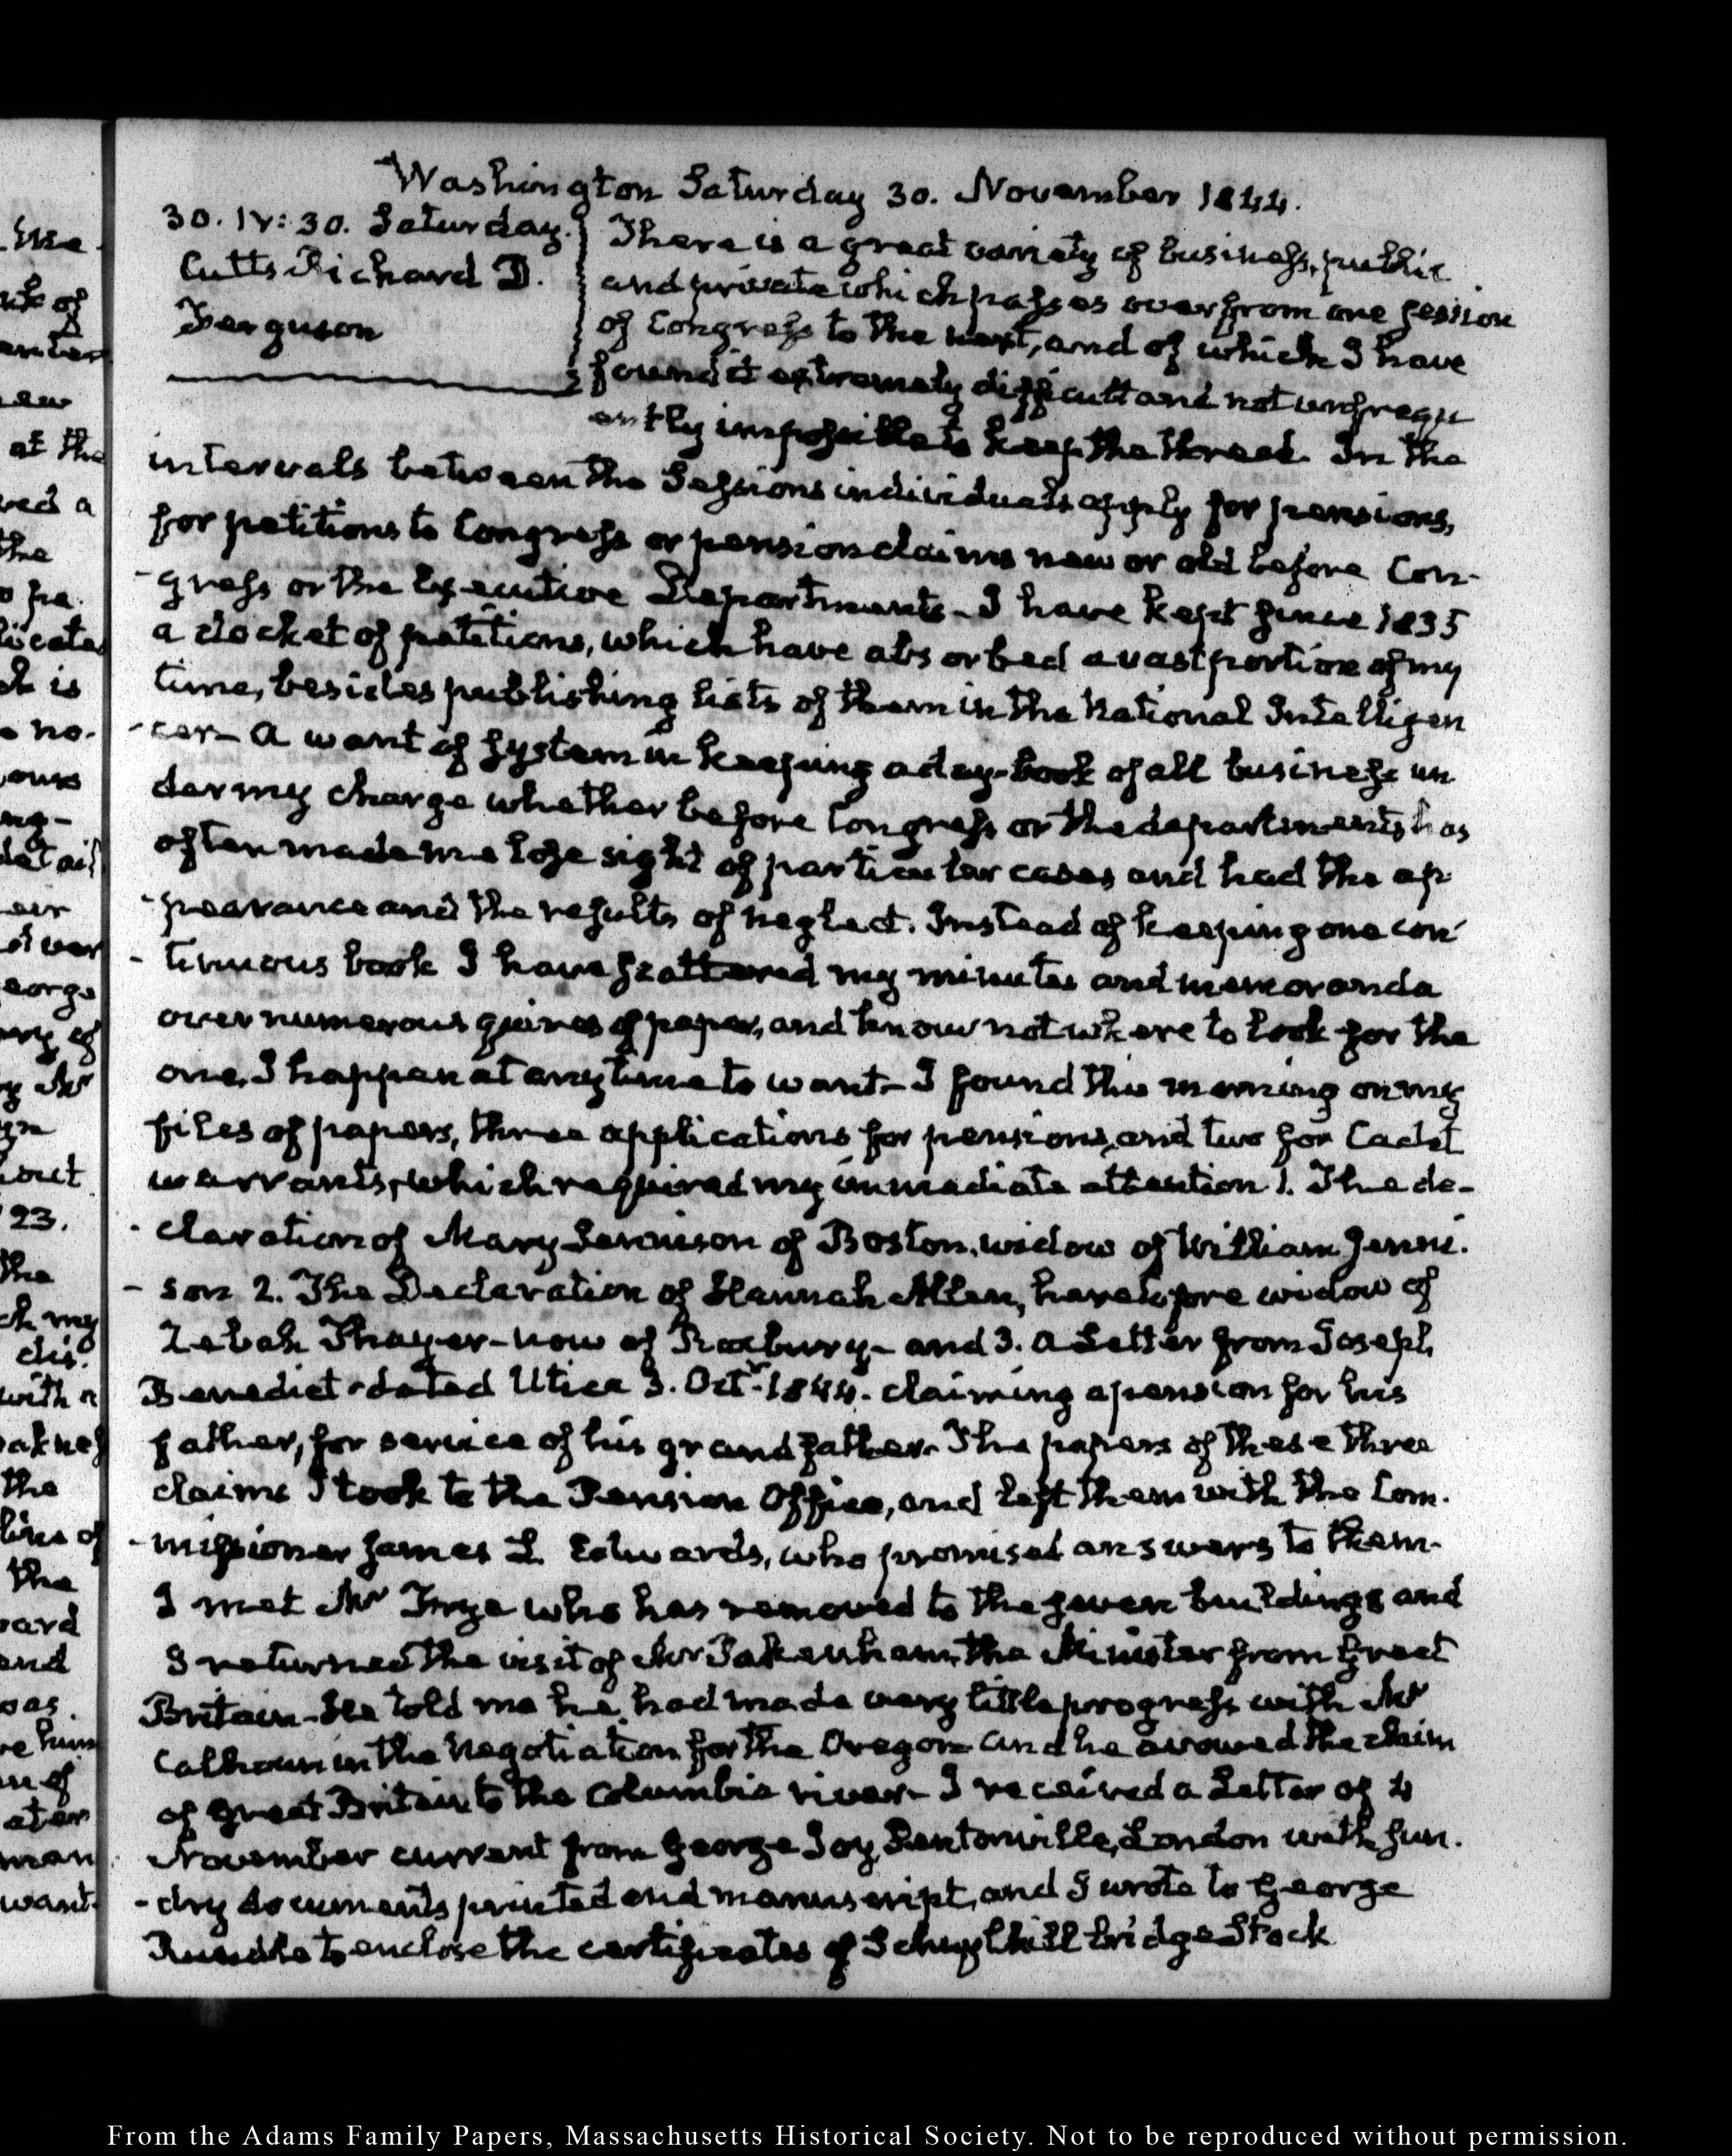 Washington Saturday 30. November 1844.
30. IV: 30. Saturday.
Cutts Richard D.
Ferguson
There is a great variety of business, public
and private which passes over from one session
of Congress to the next, and of which I have
found it extremely difficult and not unfrequ
ently impossible to keep the thread. In the
intervals between the Sessions individuals apply for pensions,
for petitions to Congress or pension claims new or old before Con-
-gress or the Executive Departments- I have kept since 1835
a docket of petitions, which have absorbed a vast portion of my
time, besides publishing lists of them in the National Intelligen
-cer- A want of system in keeping a day-book of all business un
der my charge whether before Congress or the departments has
often made me lose sight of particular cases and had the ap
-pearance and the results of neglect. Instead of keeping one con
-tinuous book I have scattered my minutes and memoranda
over numerous quires of paper, and know not where to look for the
one, I happen at any time to want- I found this morning on my
files of papers, three applications for pensions, and two for Cadet
warrants, which required my immediate attention 1. The de-
-claration of Mary Jennison of Boston, widow of William Jenni.
-son 2. The Declaration of Hannah Allen, heretofore widow of
Zebah Thayer- now of Roxbury- and 3. a Letter from Joseph
Benedict- dated Utica 3. Octr. 1844. claiming a pension for his
father, for service of his grandfather. The papers of these three
claims I took to the Pension Office, and left them with the Com.
-missioner James L. Edwards, who promised answers to them-
I met Mr Frye who has removed to the seven buildings and
I returned the visit of Mr Pakenham, the Minister from Great
Britain- He told me he had made very little progress with Mr
Calhoun in the negotiation for the Oregon and he avowed the claim
of Great Britain to the Columbia river- I received a Letter of 4
November current from George Joy, Pentonville, London with sun.
-dry documents printed and manuscript, and I wrote to George
Rundle to enclose the certificates of Schuylkill bridge Stock
From the Adams Family Papers, Massachusetts Historical Society. Not to be reproduced without permission.